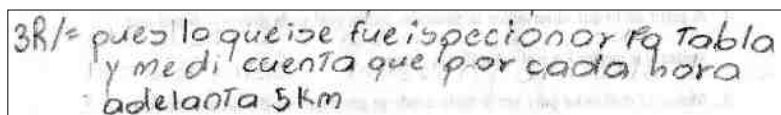 3R/= pues lo que ise fue ispeccionar la Tabla
y medi cuenta que por cada hora
adelanta 5 Km